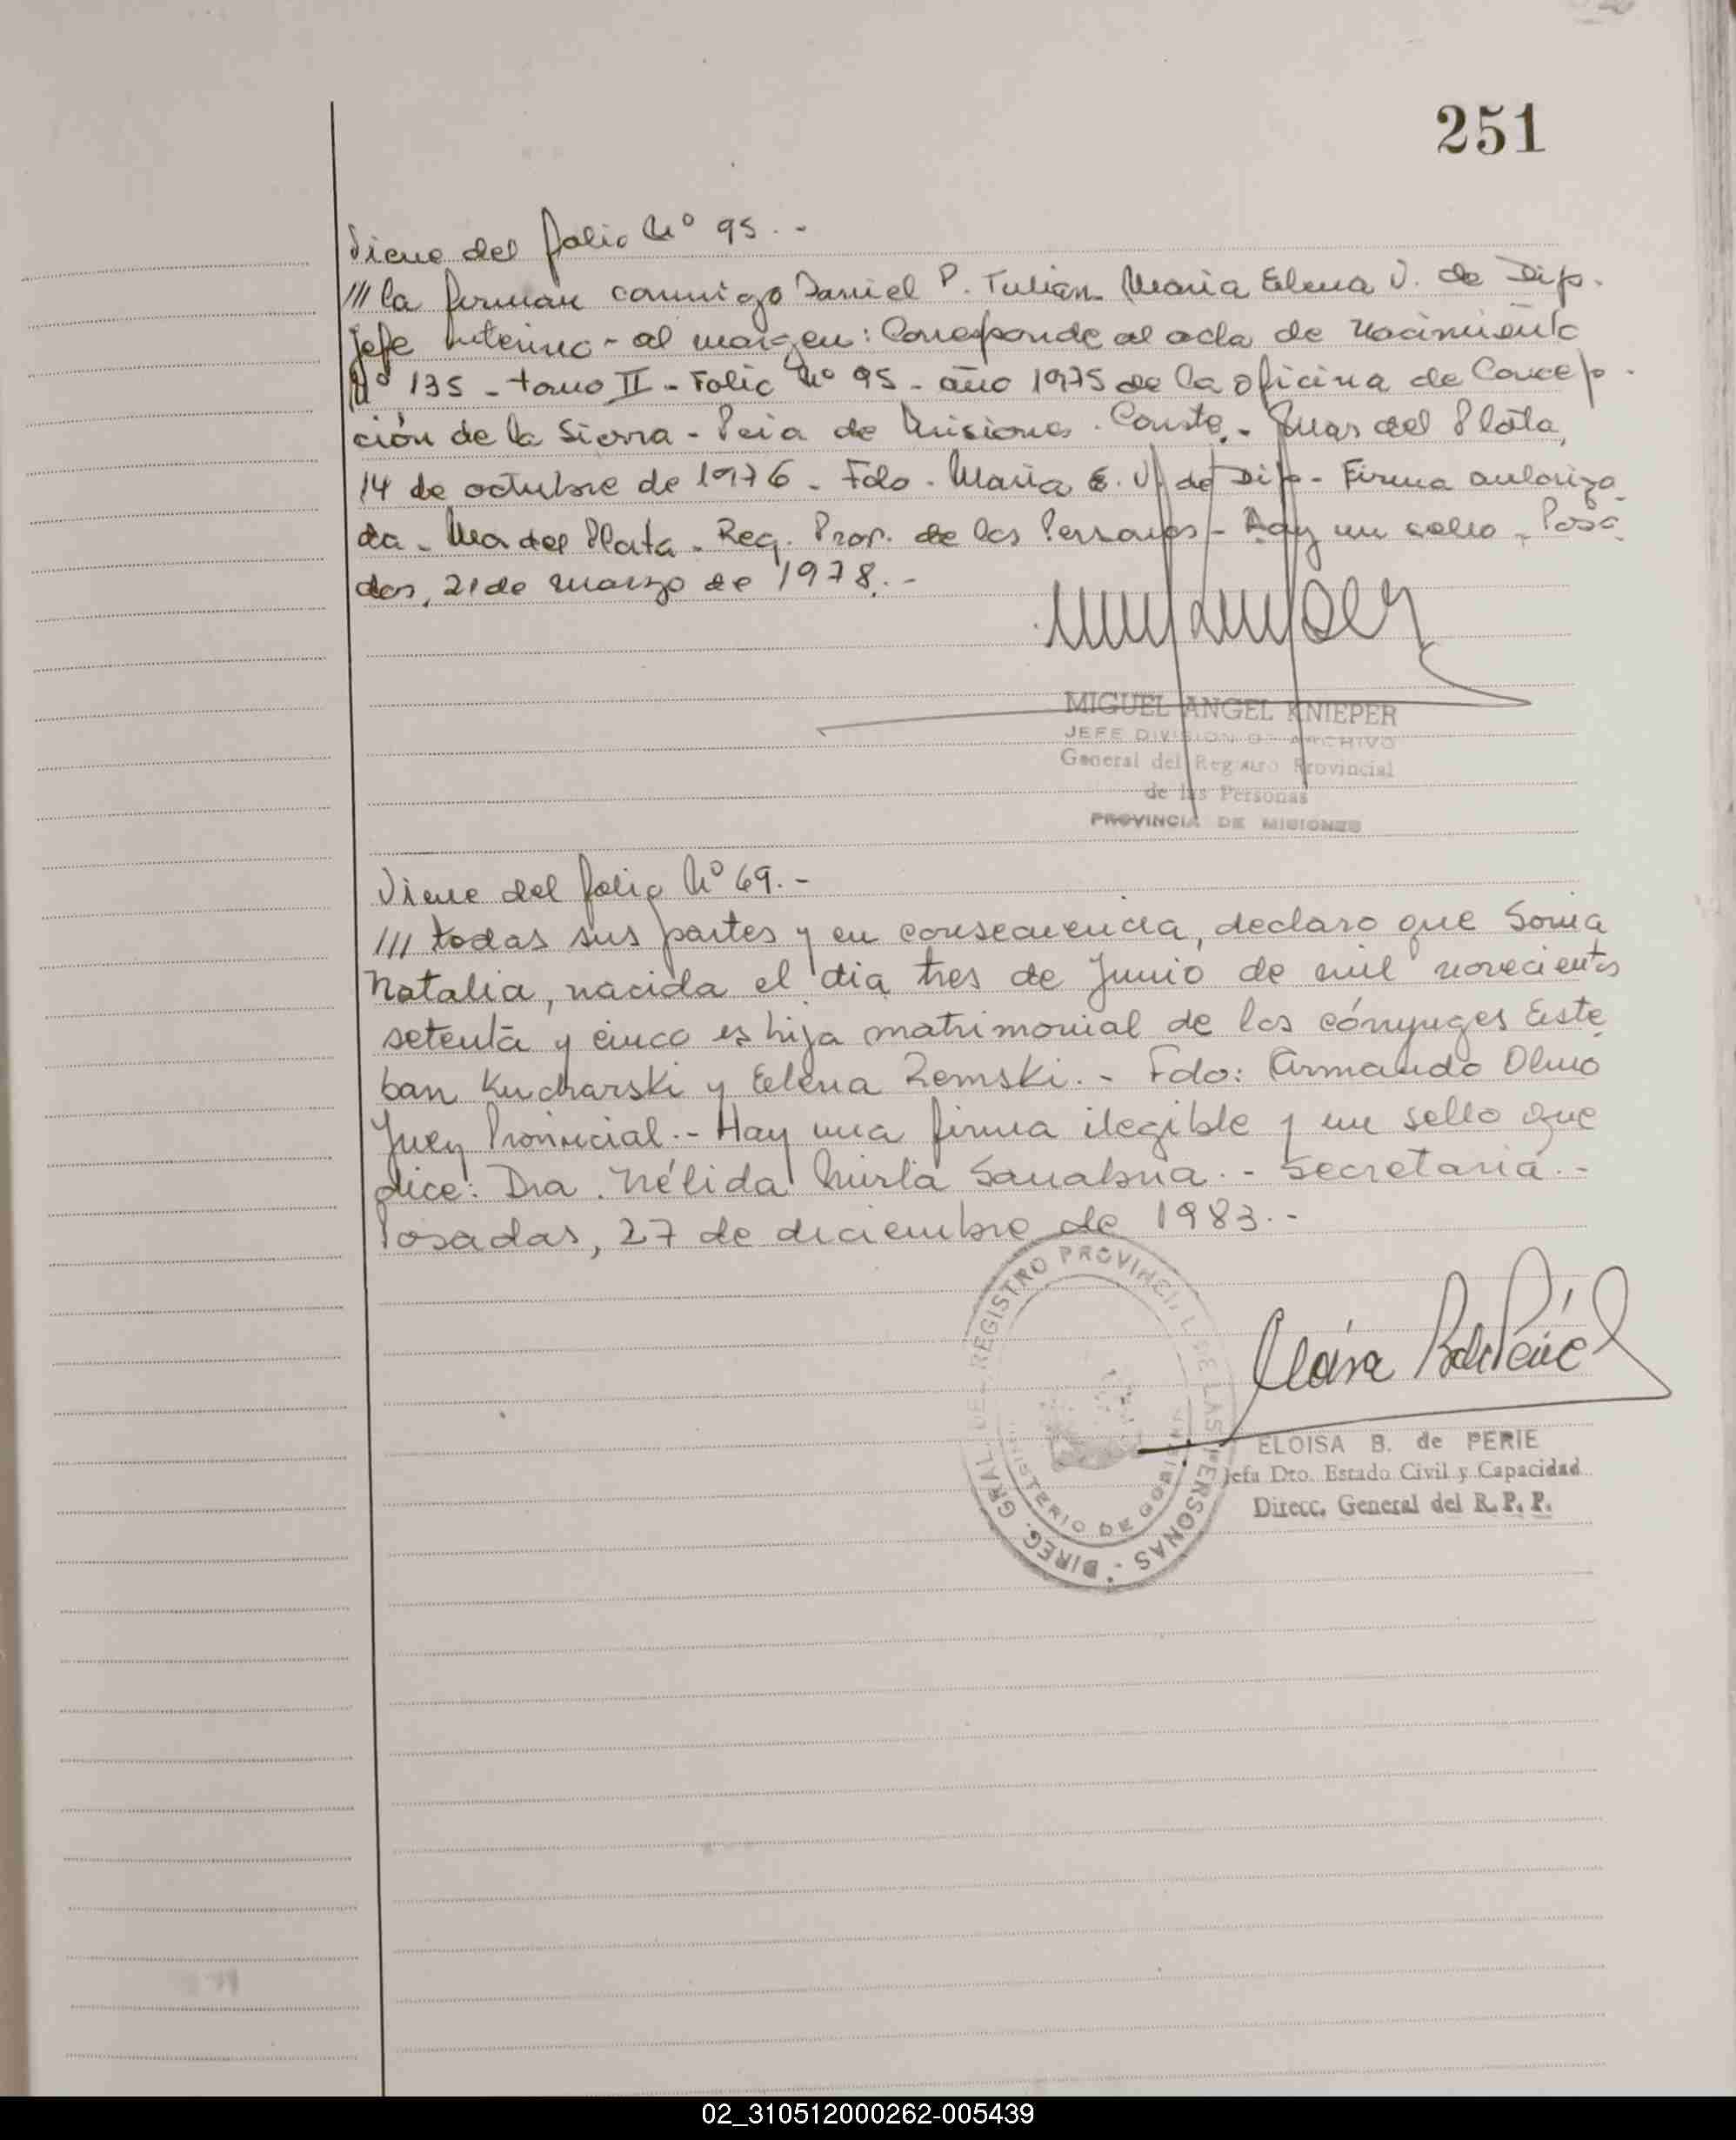 251
Viene del folio Nº 95.-
/// la firman conmigo Daniel P. Tulián María Elena V. de Dip.
Jefe Interino - al margen: Corresponde al acta de nacimiento
Nº 135 - tomo II - Folio Nº 95 - año 1975 de la oficina de Concep-
ción de la Sierra - Pcia de Misiones. Conste. - del Plata,
14 de octubre de 1976 - Fdo. María E. V. de Dip - Firma autoriza
da - Mar del Plata - Reg. Prov. de las Personas - Hay un sello - Posa
das, 21 de marzo de 1978.-
MIGUEL ANGEL KNIEPER
JEFE DIVISION DE ARCHIVO
General del Registro Provincial
de las Personas
PROVINCIA DE MISIONES
Viene del folio Nº 69.-
/// todas sus partes y en consecuencia, declaro que Sonia
Natalia, nacida el día tres de Junio de mil novecientos
setenta y cinco es hija matrimonial de los cónyuges Este
ban Kucharski y Elena Zemski.- Fdo: Armando Olmo
Juez Provincial.- Hay una firma ilegible y un sello que
dice: Dra. Nélida Mirta Sanabria.- Secretaria.-
Posadas, 27 de diciembre de 1983.-
DIREC. GRAL. DEL REGISTRO PROVINCIAL DE LAS PERSONAS
MINISTERIO DE GOBIERNO
ELOISA B. de PERIE
Jefa Dto. Estado Civil y Capacidad
Direcc. General del R. P. P.
02_310512000262-005439